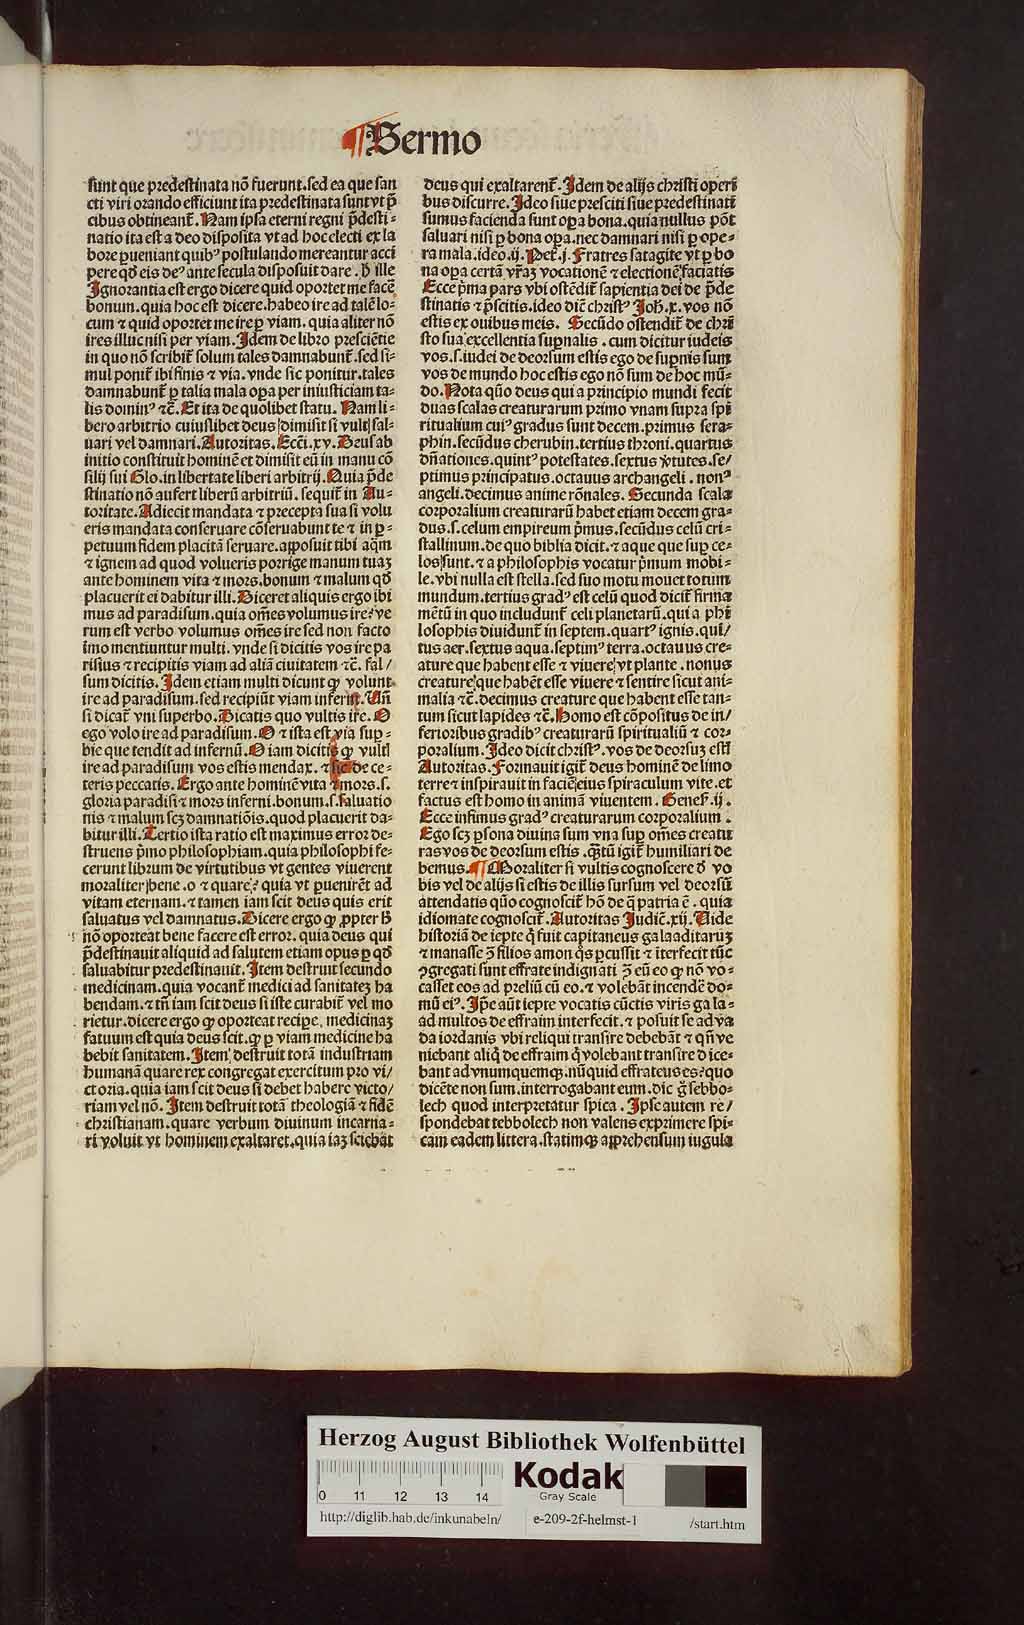 ¶ Sermo
sunt que predestinata nõ fuerunt.sed ea que san
cti viri orando efficiunt ita predestinata sunt vt p̃
cibus obtineant᷑. Nam ipsa eterni regni p̃desti-
natio ita est a deo disposita vt ad hoc electi ex la
bore ꝑueniant quibꝰ postulando mereantur acci
pere qđ eis deꝰ ante secula disposuit dare. ħ ille
Ignorantia est ergo dicere quid oportet me facẽ
bonum.quia hoc est dicere.habeo ire ad talẽ lo-
cum ⁊ quid oportet me ire ꝑ viam. quia aliter nõ
ires illuc nisi per viam. Idem de libro presciẽtie
in quo nõ scribit᷑ solum tales damnabunt᷑.sed si-
mul ponit᷑ ibi finis ⁊ via. vnde sic ponitur.tales
damnabunt᷑ ꝑ talia mala oꝑa per iniusticiam ta-
lis dominꝰ ⁊c̃. Et ita de quolibet statu. Nam li-
bero arbitrio cuiuslibet deus dimisit si vult sal-
uari vel damnari. Autoritas. Ecc̃i.xv. Deus ab
initio constituit hominẽ et dimisit eũ in manu cõ
silij sui Glo.in libertate liberi arbitrij. Quia p̃de
stinatio nõ aufert liberũ arbitriũ. sequit᷑ in Au-
toritate. Adiecit mandata ⁊ precepta sua si volu
eris mandata conseruare cõseruabunt te ⁊ in ꝑ-
petuum fidem placitã seruare.apposuit tibi aq̃m
⁊ ignem ad quod volueris porrige manum tuaꝫ
ante hominem vita ⁊ mors.bonum ⁊ malum qđ
placuerit ei dabitur illi. Diceret aliquis ergo ibi
mus ad paradisum.quia om̃es volumus ire:ve
rum est verbo volumus om̃es ire sed non facto
imo mentiuntur multi. vnde si dicitis vos ire pa
risius ⁊ recipitis viam ad aliã ciuitatem ⁊c̃. fal/
sum dicitis. Idem etiam multi dicunt ꝙ volunt
ire ad paradisum.sed recipiũt viam inferni. Vñ
si dicat᷑ vni superbo. Dicatis quo vultis ire. O
ego volo ire ad paradisum. O ⁊ ista est via sup-
bie que tendit ad infernũ. O iam dicitis ꝙ vultl
ire ad paradisum vos estis mendax. ⁊ sic de ce-
teris peccatis. Ergo ante hominẽ vita ⁊ mors.s.
gloria paradisi ⁊ mors inferni.bonum.s.saluatio
nis ⁊ malum scꝫ damnatiõis.quod placuerit da-
bitur illi. Tertio ista ratio est maximus error de-
struens p̃mo philosophiam.quia philosophi fe-
cerunt librum de virtutibus vt gentes viuerent
moraliter bene.o ⁊ quare? quia vt ꝑuenirẽt ad
vitam eternam.⁊ tamen iam scit deus quis erit
saluatus vel damnatus. Dicere ergo ꝙ ꝓpter ħ
nõ oporteat bene facere est error. quia deus qui
p̃destinauit aliquid ad salutem etiam opus ꝑ qđ
saluabitur predestinauit. Item destruit secundo
medicinam.quia vocant᷑ medici ad sanitateꝫ ha
bendam.⁊ tñ iam scit deus si iste curabit᷑ vel mo
rietur.dicere ergo ꝙ oporteat recipe, medicinaꝫ
fatuum est quia deus scit.ꝙ ꝑ viam medicine ha
bebit sanitatem. Item destruit totã industriam
humanã quare rex congregat exercitum pro vi/
ctoria.quia iam scit deus si debet habere victo/
riam vel nõ. Item destruit totã theologiã ⁊ fidẽ
christianam.quare verbum diuinum incarna-
ri voluit vt hominem exaltaret.quia iaꝫ sciebat
deus qui exaltarent᷑. Idem de alijs christi operi
bus discurre. Ideo siue presciti siue predestinati
sumus facienda sunt oꝑa bona.quia nullus põt
saluari nisi ꝑ bona oꝑa.nec damnari nisi ꝑ ope-
ra mala.ideo.ij. Pet᷑.j. Fratres satagite vt ꝑ bo
na oꝑa certã vr̃aꝫ vocationẽ ⁊ electionẽ faciatis
Ecce p̃ma pars vbi ostẽdit᷑ sapientia dei de p̃de
stinatis ⁊ p̃scitis.ideo diẽ christꝰ Joh̃.x.vos nõ
estis ex ouibus meis. Secũdo ostendit᷑ de chri
sto sua excellentia suꝑnalis . cum dicitur iudeis
vos.s.iudei de deorsum estis ego de suꝑnis sum
vos de mundo hoc estis ego nõ sum de hoc mũ-
do. Nota qũo deus qui a principio mundi fecit
duas scalas creaturarum primo vnam supra spi
ritualium cuiꝰ gradus sunt decem.primus sera-
phin.secũdus cherubin.tertius throni.quartus
dñationes.quintꝰ potestates.sextus ꝟtutes.se/
ptimus principatus.octauus archangeli . nonꝰ
angeli.decimus anime rõnales. Secunda scala
corporalium creaturarũ habet etiam decem gra-
dus.s.celum empireum p̃mus.secũdus celũ cri-
stallinum.de quo biblia dicit.⁊ aque que suꝑ ce-
los sunt.⁊ a philosophis vocatur p̃mum mobi-
le.vbi nulla est stella.sed suo motu mouet totum
mundum.tertius gradꝰ est celũ quod dicit᷑ firma
mẽtũ in quo includunt᷑ celi planetarũ.qui a phi
losophis diuidunt᷑ in septem.quartꝰ ignis.qui/
tus aer.sextus aqua.septimꝰ terra.octauus cre-
ature que habent esse ⁊ viuere vt plante .nonus
creature que habẽt esse viuere ⁊ sentire sicut ani-
malia ⁊c̃.decimus creature que habent esse tan-
tum sicut lapides ⁊c̃. Homo est cõpositus de in/
ferioribus gradibꝰ creaturarũ spiritualiũ ⁊ cor-
poralium. Ideo dicit christꝰ.vos de deorsuꝫ estl
Autoritas. Formauit igit᷑ deus hominẽ de limo
terre ⁊ inspirauit in faciẽ eius spiraculum vite.et
factus est homo in animã viuentem . Genes᷑.ij.
Ecce infimus gradꝰ creaturarum corporalium .
Ego scꝫ ꝑsona diuina sum vna suꝑ om̃es creatu
ras vos de deorsum estis .q̃tũ igit᷑ humiliari de
bemus. ¶ Moraliter si vultis cognoscere đ vo
bis vel de alijs si estis de illis sursum vel deorsũ
attendatis quo cognoscit᷑ hõ de q̃ patria ẽ . quia
idiomate cognoscit᷑. Autoritas Judic̃.xij. Vide
historiã de iepte q̃ fuit capitaneus galaaditarũꝫ
⁊ manasse ꝯ̃ filios amon q̃s ꝑcussit ⁊ iterfecit tũc
ꝯgregati sunt effrate indignati ꝯ̃ eũ eo ꝙ nõ vo-
casset eos ad preliũ cũ eo.⁊ volebãt incendẽ do-
mũ eiꝰ. Ip̃e aũt iepte vocatis cũctis viris gala-
ad multos de effraim interfecit.⁊ posuit se ad va
da iordanis vbi reliqui transire debebãt ⁊ qñ ve
niebant aliq̃ de effraim q̃ volebant transire dice-
bant ad vnumquemqꝫ.nũquid effrateus es?quo
dicẽte non sum.interrogabant eum.dic g̃ sebbo-
lech quod interpretatur spica . Ipse autem re/
spondebat tebbolech non valens exprimere spi-
cam eadem littera.statimqꝫ apprehensum iugula
Herzog August Bibliothek Wolfenbüttel
0 11 12 13 14
Kodak
Gray Scale
http://diglib.hab.de/inkunabeln/ e-209-2f-helmst-1 /start.htm